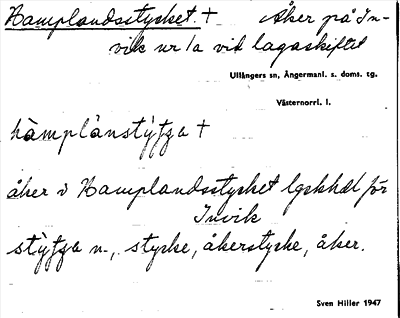 Hamplandsstycket. + Åker på In-
vik nr 1a vid lagaskiftet
Ullångers sn, Ångermanl. s. doms. tg.
Västernorrl. l.
hàmplànstýʃʒa +
åker i Hamplandsstycket lgskhdl för
Invik
stýʃʒa n., stycke, åkerstycke, åker.
Sven Hiller 1947